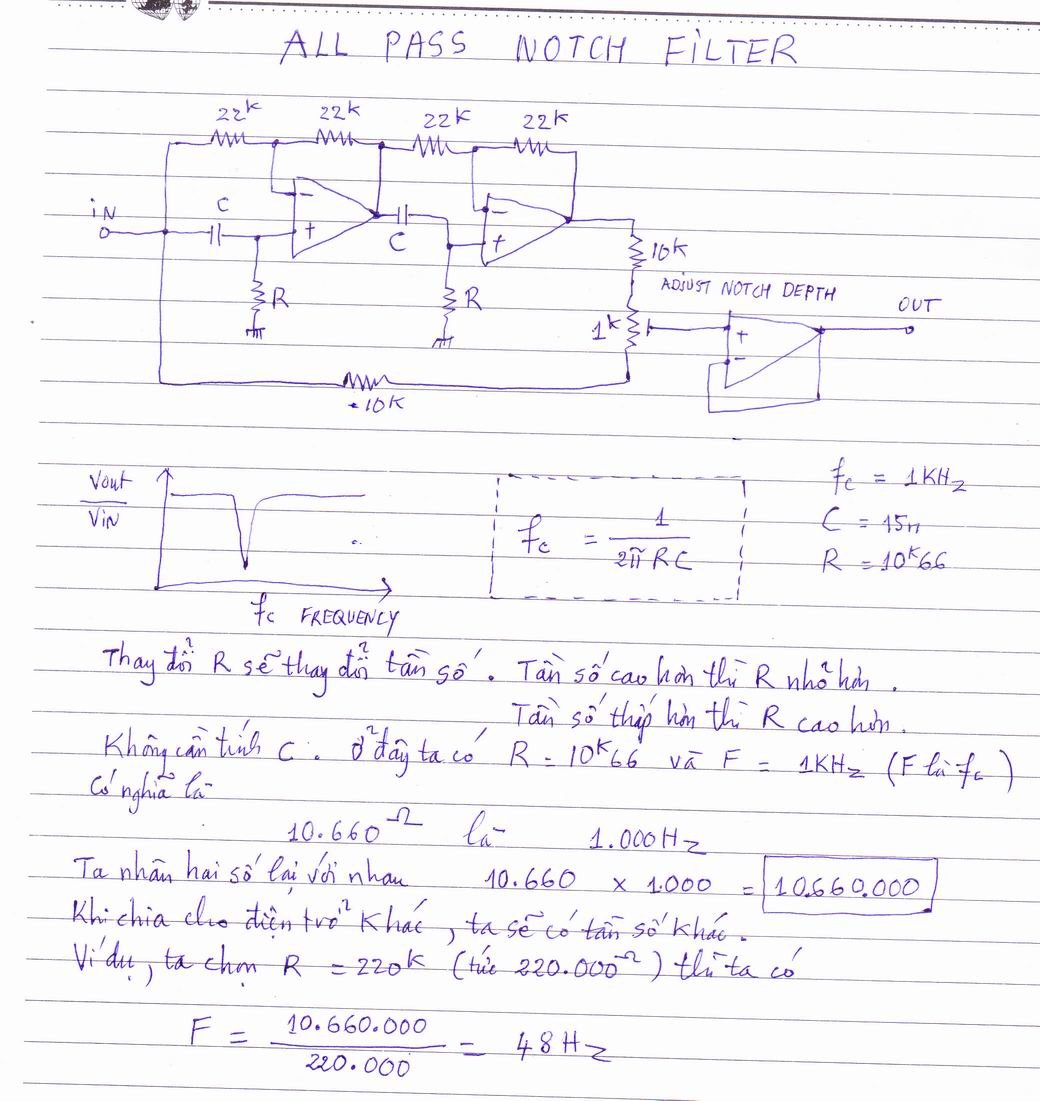 ALL PASS NOTCH FILTER
22K 22K 22K 22K
iN
C
C
R
R
10K
ADJUST NOTCH DEPTH
OUT
1K
10K
- +
- +
+ -
Vout
ViN
fc FREQUENCY
fc = 1 / 2πRC
fc = 1KHz
C = 15n
R = 10K66
Thay đổi R sẽ thay đổi tần số. Tần số cao hơn thì R nhỏ hơn.
Tần số thấp hơn thì R cao hơn.
Không cần tính C. Ở đây ta có R = 10K66 và F = 1KHz (F là fc)
Có nghĩa là
10.660Ω là 1.000Hz
Ta nhân hai số lại với nhau 10.660 x 1.000 = 10.660.000
Khi chia cho điện trở khác, ta sẽ có tần số khác.
Ví dụ, ta chọn R = 220K (tức 220.000Ω) thì ta có
F = 10.660.000 / 220.000 = 48Hz